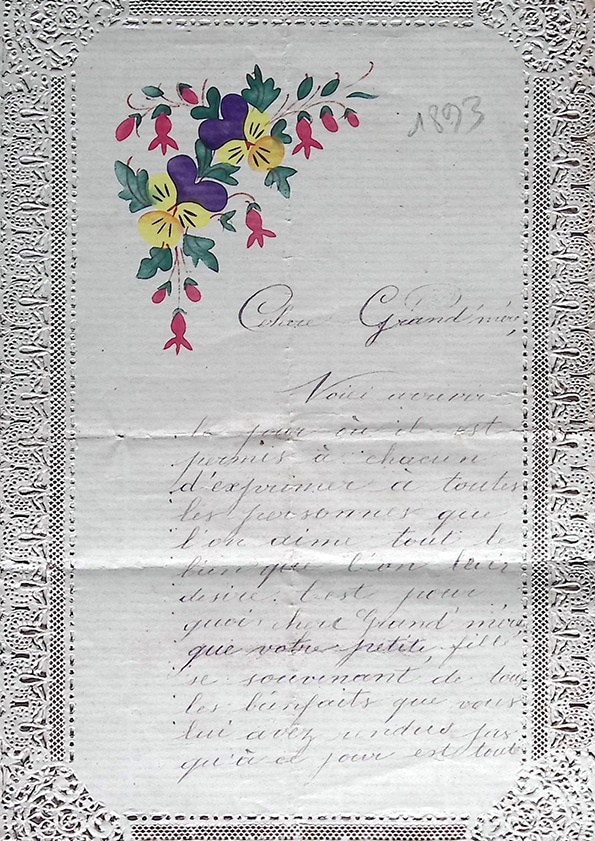 1893
Chère Grand'mère,
Voici arrivé
le jour où il est
permis à chacun
d'exprimer à toutes
les personnes que
l'on aime tout le
bien que l'on leur
désire C'est pour
quoi chère Grand'mère
que votre petite fille
se souvenant de tous
les bienfaits que vous
lui avez rendus jus
qu'à ce jour est toute